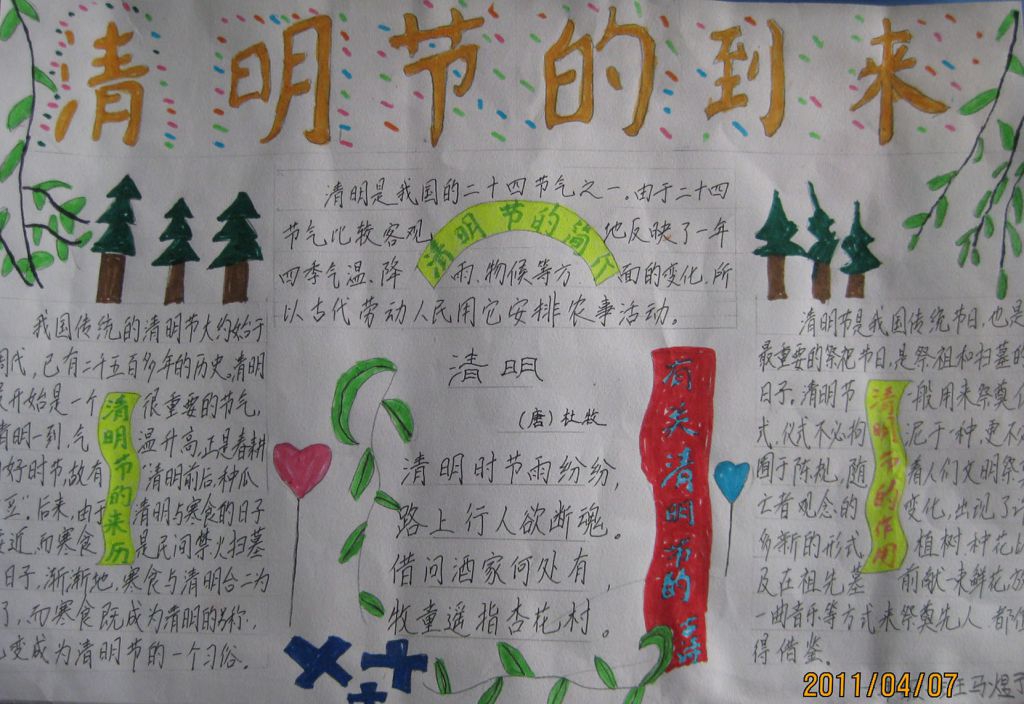 清明节的到来
清明是我国的二十四节气之一。由于二十四
节气比较客观地反映了一年
四季气温、降雨、物候等方面的变化,所
以古代劳动人民用它安排农事活动。
清明节的简介
我国传统的清明节大约始于
周代,已有二千五百多年的历史。清明
开始是一个很重要的节气,
清明一到,气温升高,正是春耕
好时节,故有“清明前后,种瓜
豆”。后来,由于清明与寒食的日子
接近,而寒食是民间禁火扫墓
日子,渐渐地,寒食与清明合二为
了,而寒食既成为清明的别称,
变成为清明节的一个习俗。
清明节的来历
清明
(唐)杜牧
清明时节雨纷纷,
路上行人欲断魂。
借问酒家何处有,
牧童遥指杏花村。
有关清明节的诗
清明节是我国传统节日,也是
最重要的祭祀节日,是祭祖和扫墓的
日子。清明节一般用来祭奠
式,仪式不必拘泥于一种,更不
囿于陈规,随着人们文明祭
亡者观念的变化,出现了
多新的形式 植树、种花
及在祖先墓前献一束鲜花,
一曲音乐等方式来祭奠先人,都
得借鉴。
清明节的作用
2011/04/07